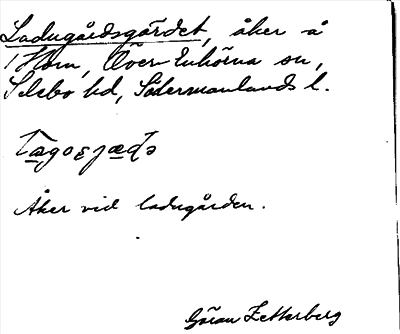 Ladugårdsgärdet, åker å
Horn, Över-Enhörna sn,
Selebo hd, Södermanlands l.
Åker vid ladugården.
Göran Zetterberg